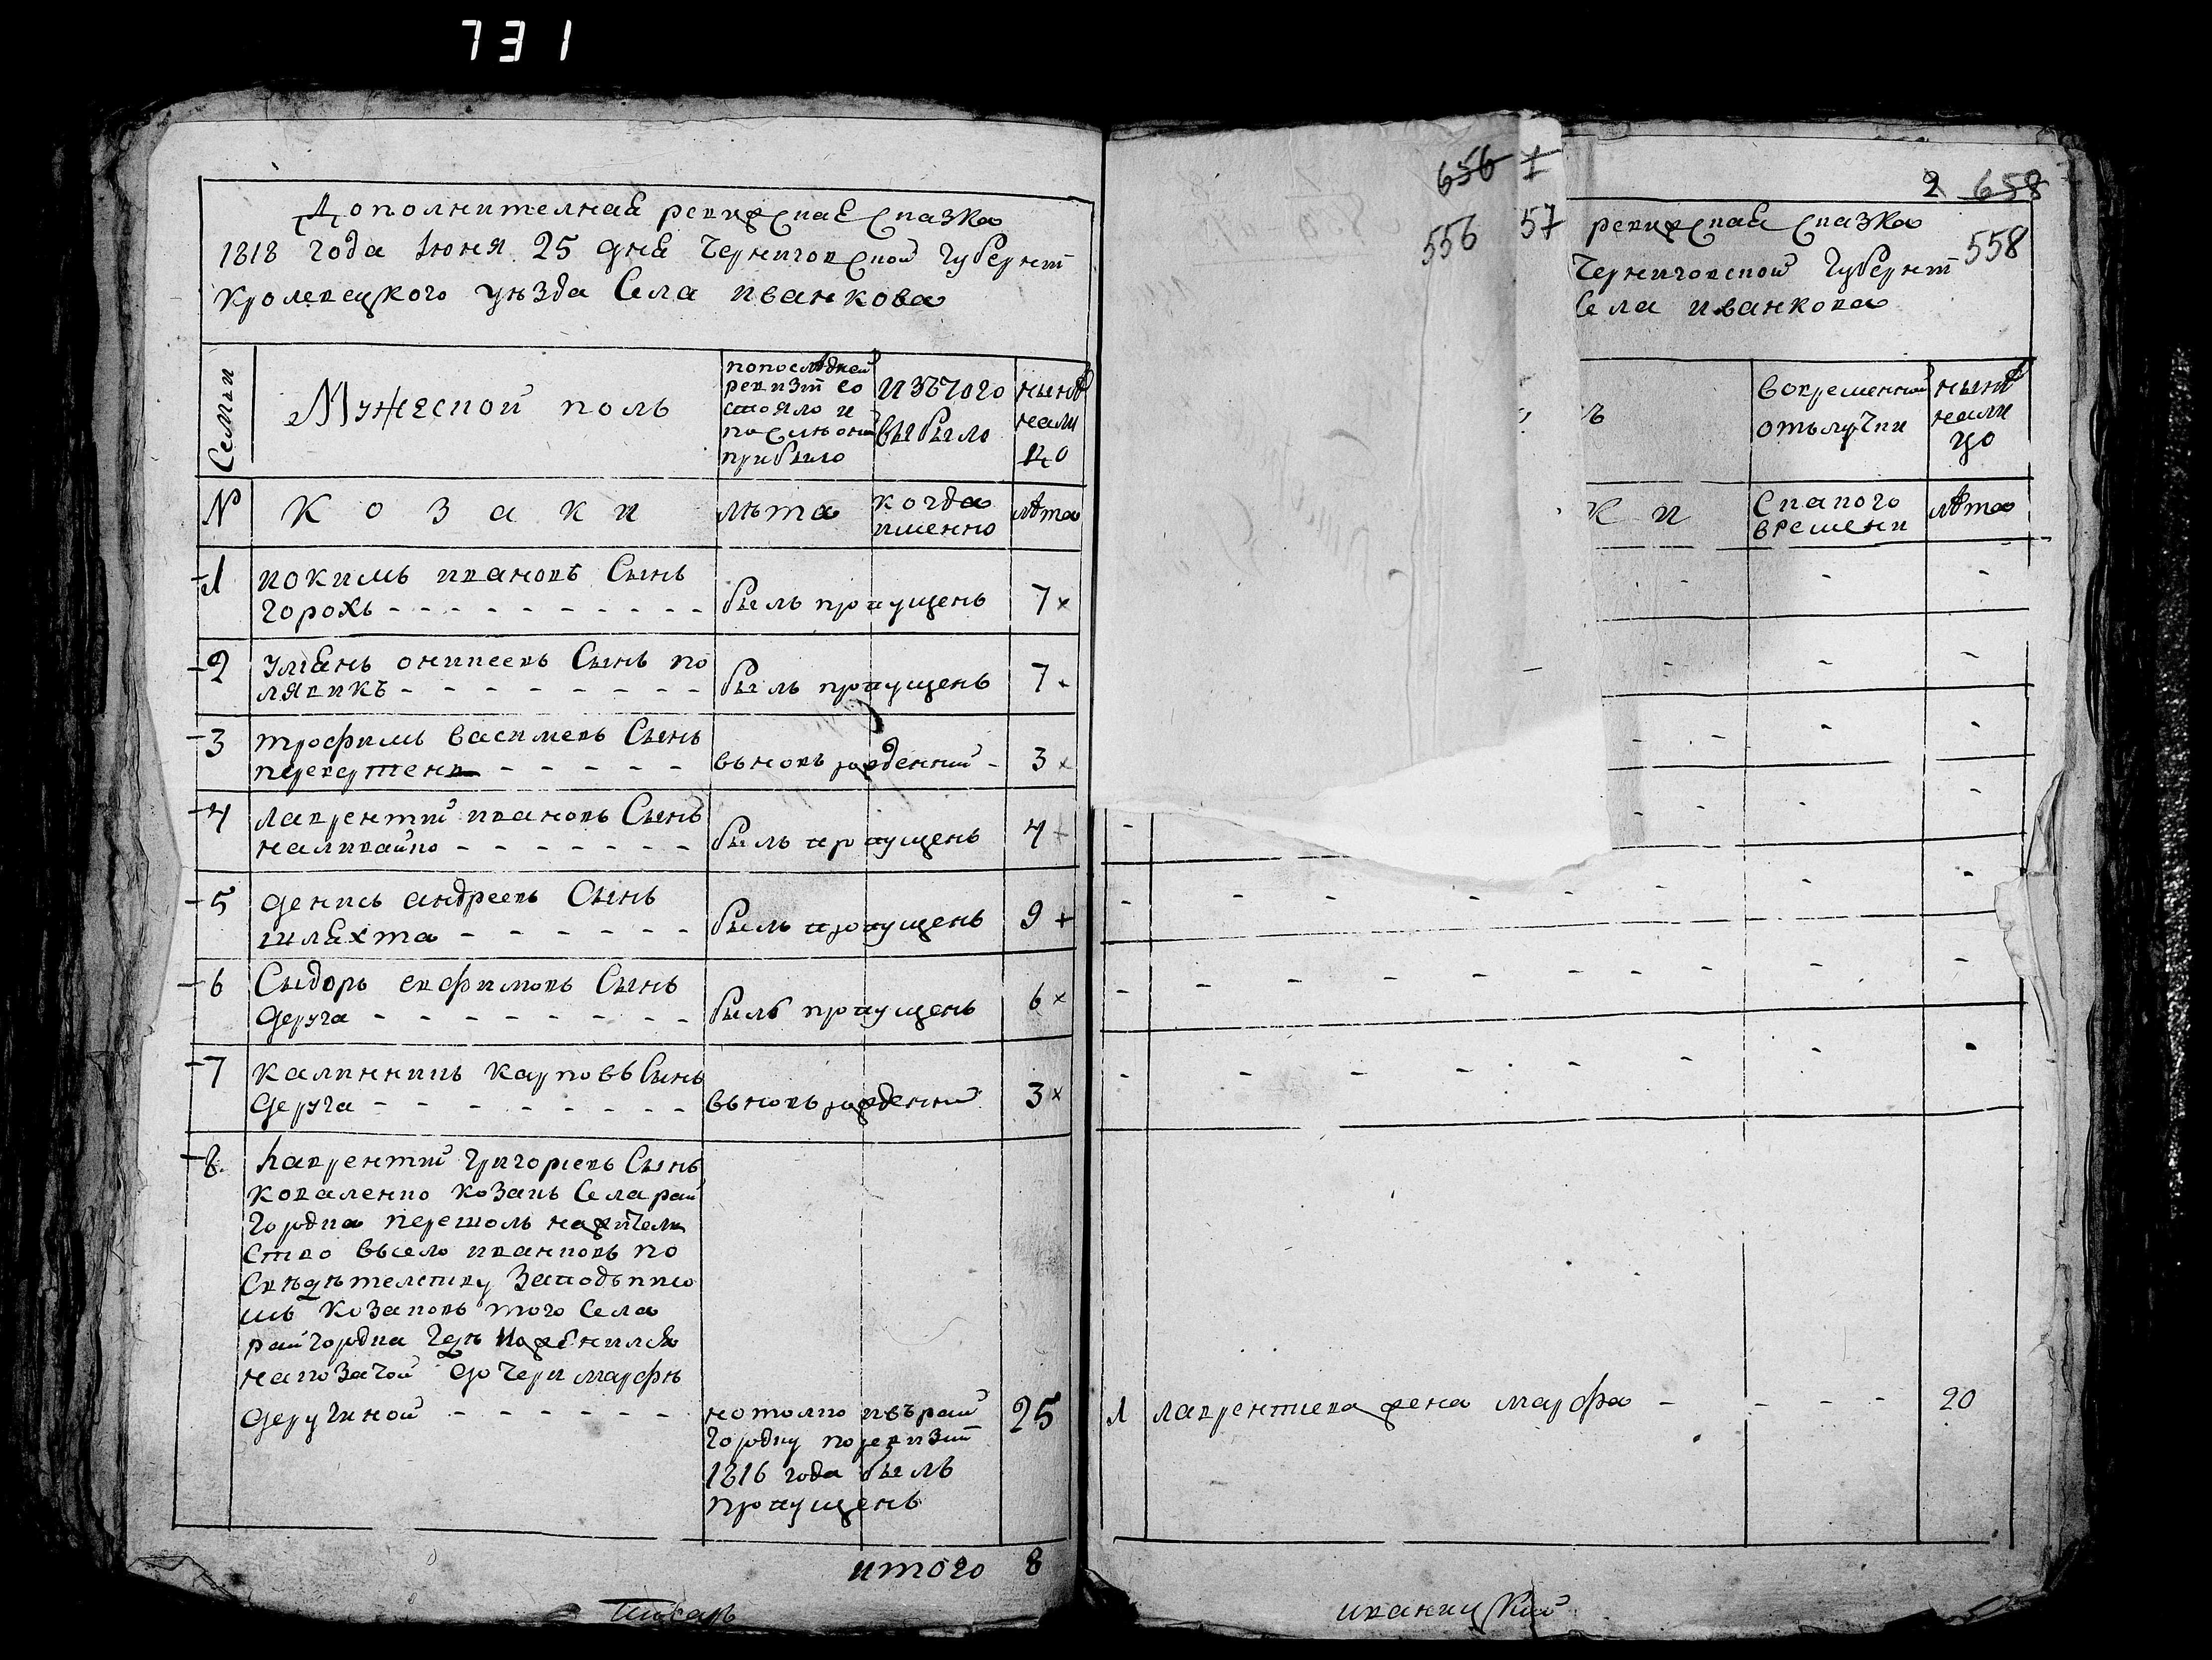 731
Дополнителная ревизская сказка
1818 года июня 25 дня Черниговской Губерніи
Кролевецкого уѣзда Села иванкова
Семьи
Мужеской полъ
попоследней
ревизіи со
стояло и
послѣ оной
прибыло
изътого
выбыло
нынѣ
нали
цо
№
Козаки
лѣта
когда
именно
лѣта
1 иокимъ ивановъ Сынъ
горохъ - - - - - - - - - - былъ пропущенъ 7 х
2 улиянъ оникеевъ Сынъ по
лявикъ - - - - - - - - - былъ пропущенъ 7
3 трофимъ василиевъ Сынъ
перевертень - - - - - вьновь рожденний - 3 х
4 лаврентий ивановъ Сынъ
наливайко - - - - - - - былъ пропущенъ 4 +
5 денисъ андреевъ Сынъ
шляхта - - - - - - былъ пропущенъ 9 +
6 Сыдоръ евфимовъ Сынъ
Деруга - - - - - - - - былъ пропущенъ 6 х
7 калинникъ карповъ Сынъ
Деруга - - - - - - - - вьновь рожденний 3 х
8 лаврентий григориевъ Сынъ
коваленко козакъ Села рай
городка перешолъ нажители
ство вьсело иванковъ по
Свѣдѣтелству Заподьписо
мъ козаковъ того Села
райгородка гдѣ иоженился
накозачой дочери марфѣ
Деругиной - - - - - - нотолко ивърай
городку поревизіи
1816 года былъ
пропущенъ
25
итого 8
писарь
656 1
556 57
2 658
558
ревизская сказка
Черниговской Губерніи
Села иванкова
ъ
вовременной
отьлучки
нынѣ
нали
цо
ки
Скакого
времени
лѣта
1 лаврентиева жена марфа - - - - 20
иваницкий